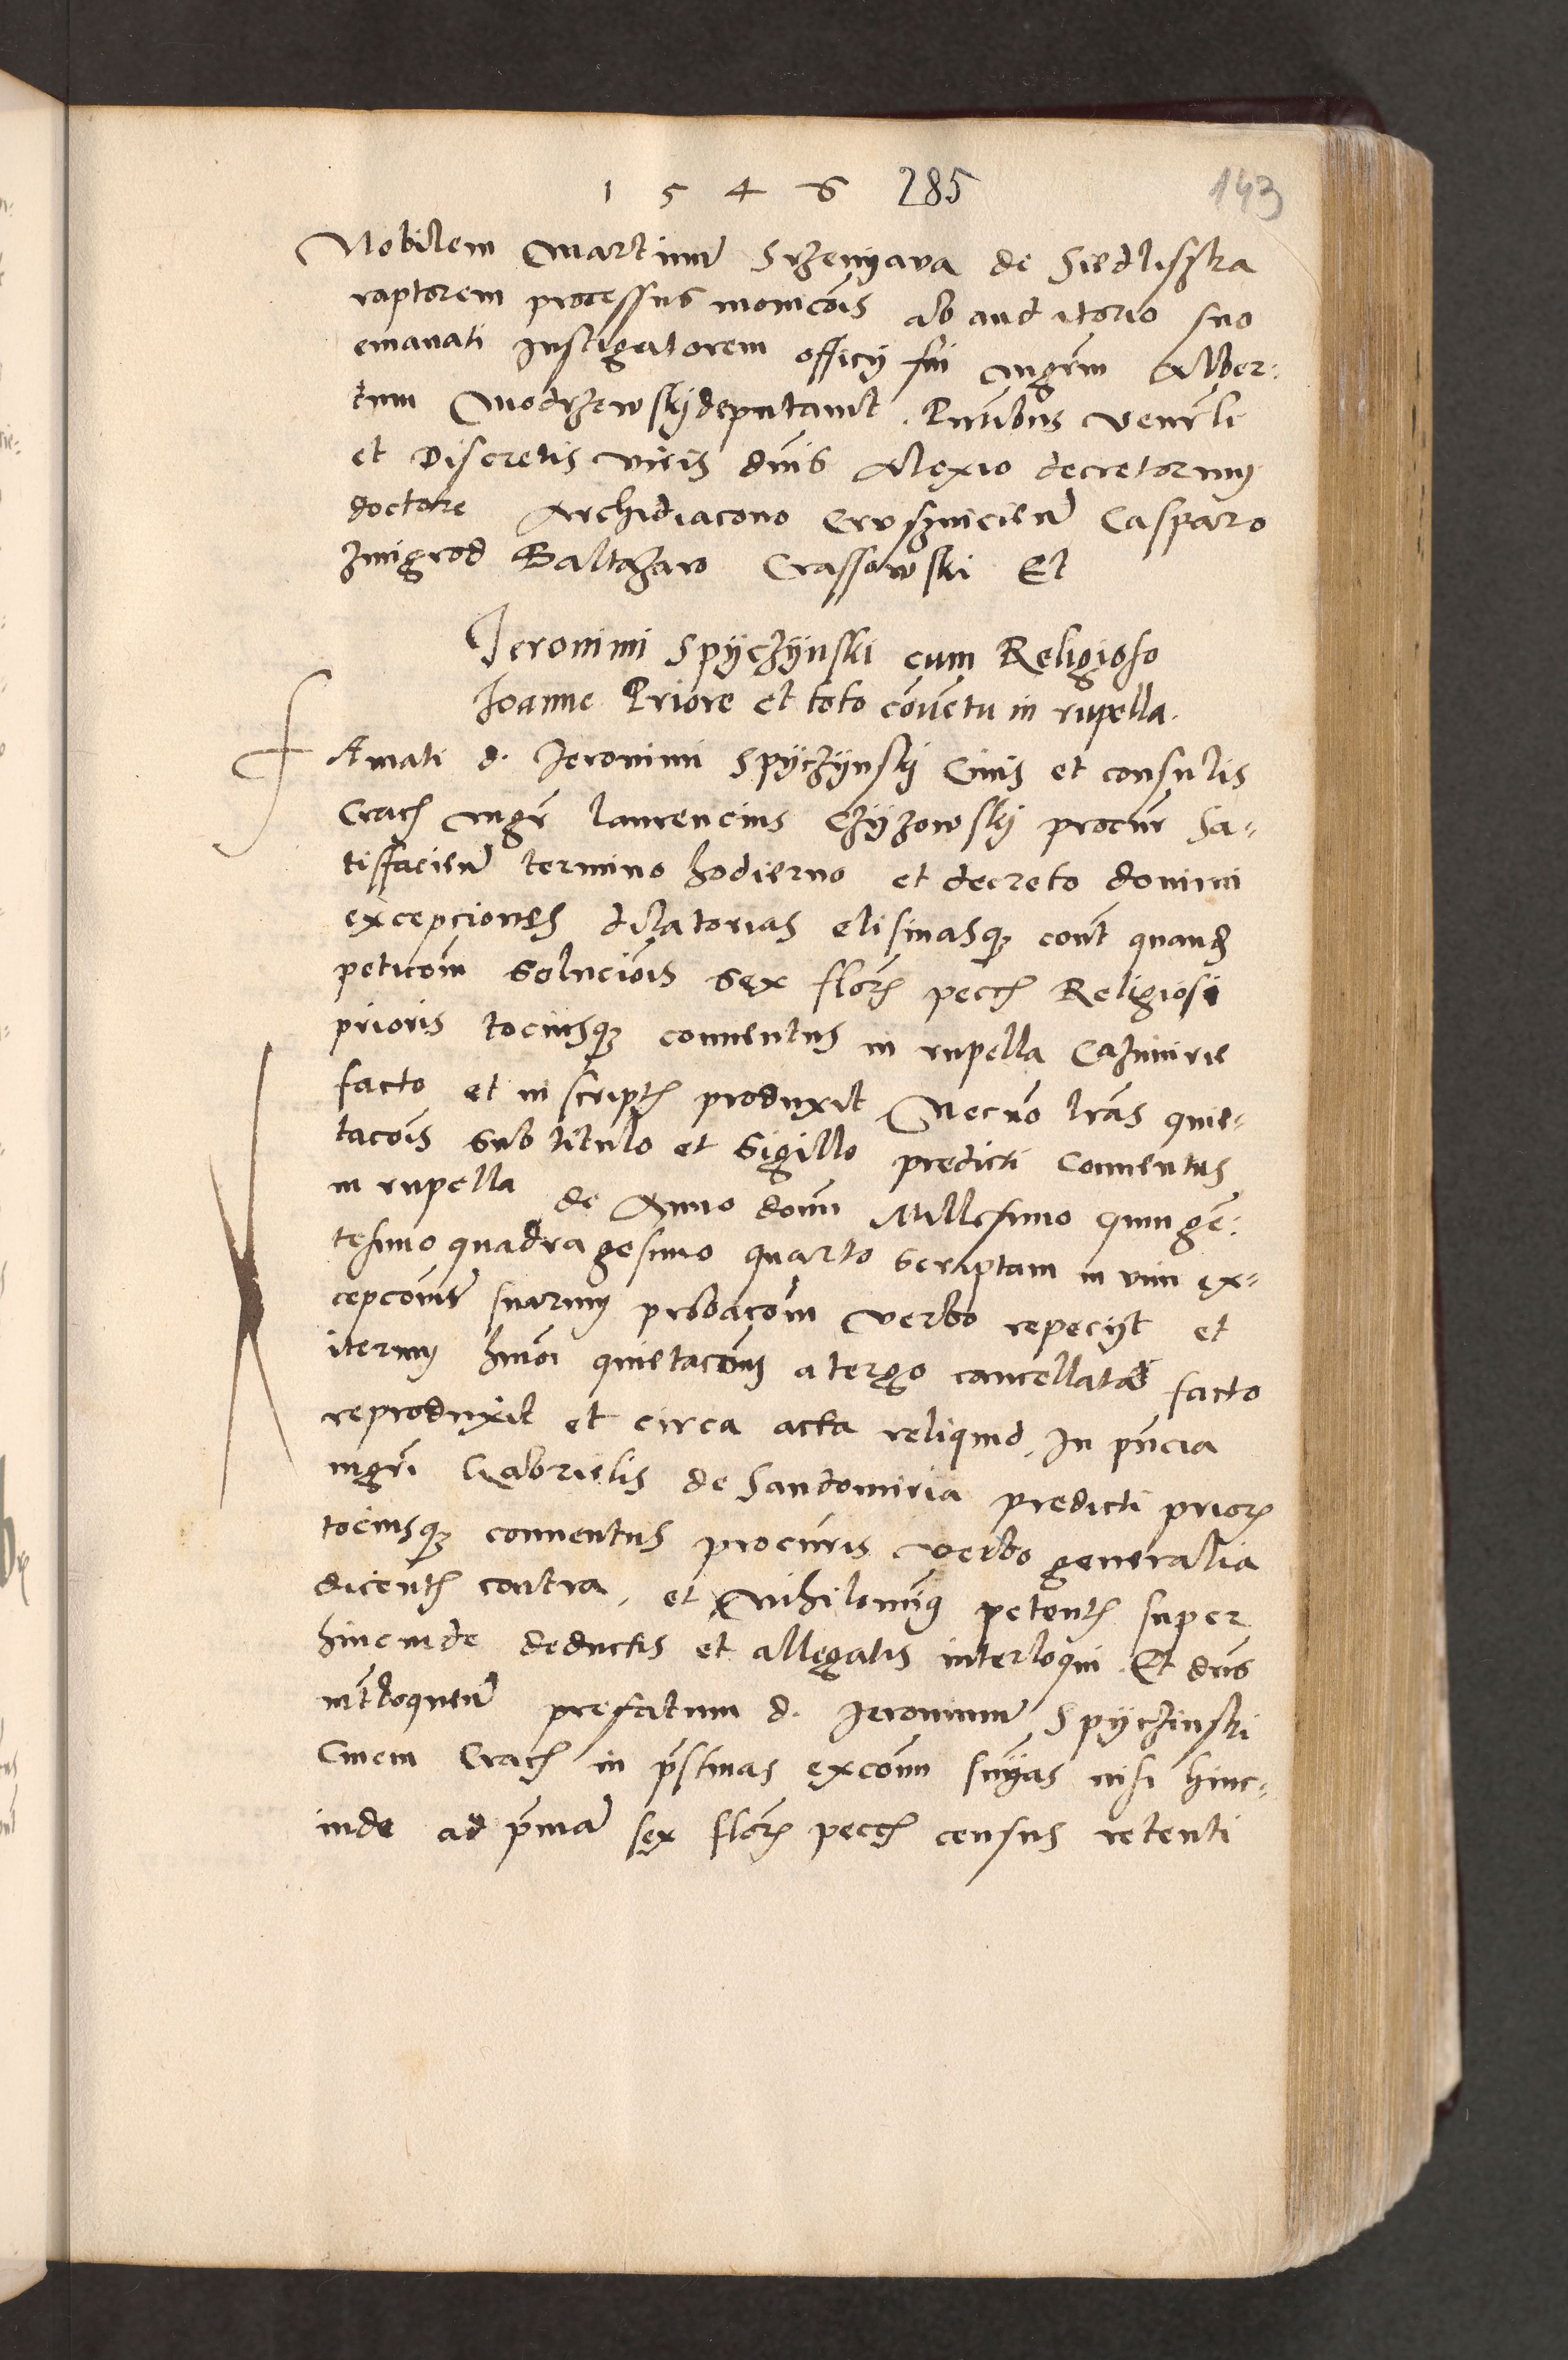 1 5 4 6 285 143
Nobilem Martinum Srzenyava de Siedliszka
raptorem processus monicõis ab auditorio suo
emanati Instigatorem officij sui mgrm Alber:
tum Modrzewskydeputavit. Pntibus venrli
et Discretis viris dnis Alexio decretorum
doctore Archidiacono Crusznicien Casparo
Zmigrod Baltazaro Crassowski Et
Jeronimi Spyczynski cum Religioso
Joanne Priore et toto cõventu in rupella.
FAmati d. Jeronimi Spyczynsky Civis et consulis
Crac mgr laurencius Czyzowsky procur sa-
tisfacien termino hodierno et decreto domini
excepciones dilatorias elisivasq cont quand
peticom Solucõis Sex flor pecc Religiosi
prioris tociusq conventus in rupella Cazimirie
facto et in script produxit Necno lras quie-
tacõis Sub titulo et Sigillo predicti Conventus
in rupella de Anno domi Millesimo quinge:
tesimo quadragesimo quarto Scriptam in vim ex-
cepcõnum suarum probacom verbo repeciyt et
iterum hmoi quietacom a tergo cancellatas facto
reproduxit et circa acta reliquid. In pncia
mgri Gabrielis de Sandomiria predicti prior
tociusq conventus procuris verbo generalia
dicent contra, et Nihilominus petent super
hincinde deductis et allegatis interloqui. Et dns
intloquen prefatum d. Jeronimum Spyczinski
Civem Crac in pstinas excom snyas nisi hinc-
inde ad pmam sex flor pecc census retenti